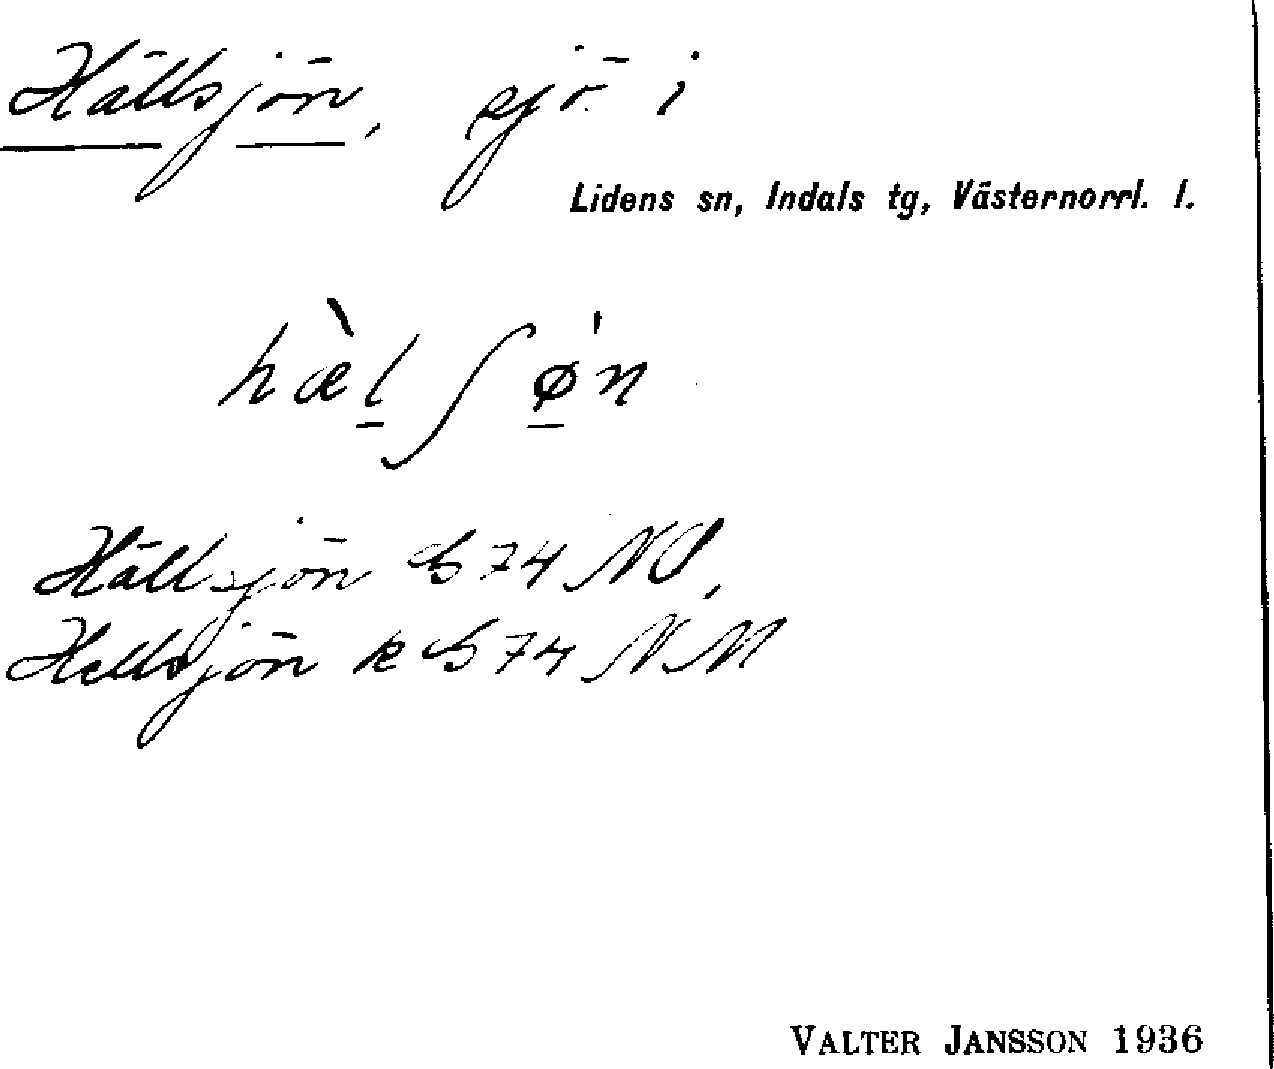 Hällsjön, sjö i
Lidens sn, Indals tg, Västernorrl. l.
hæ̀l ʃ ø'n
Hällsjön S 74 NO,
Hellsjön k S 74 NM
VALTER JANSSON 1936